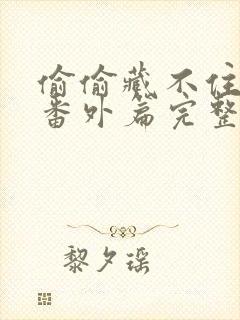 偷偷藏不住
番外篇完整
黎夕瑶